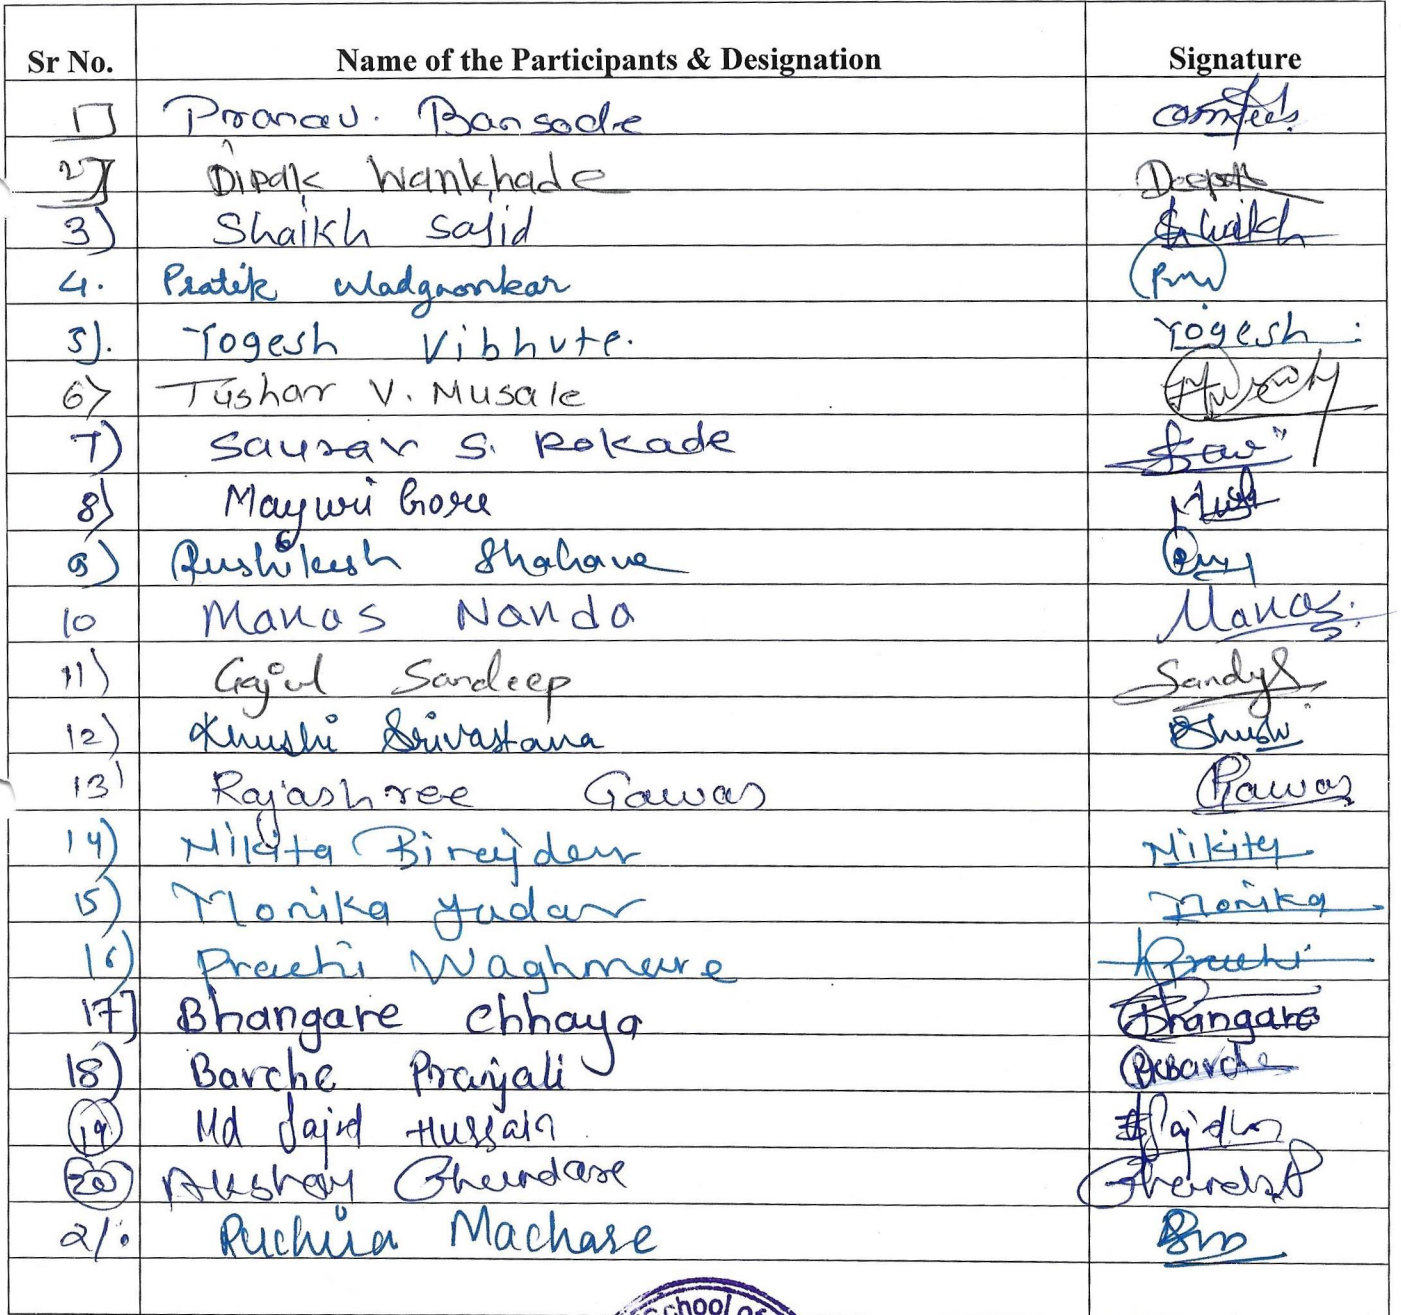 Sr No. Name of the Participants & Designation Signature
1] Pranav. Bansode
2] Dipak Wankhade Deepak
3) Shaikh Sajid Shaikh
4. Pratik Wadgaonkar
5). Yogesh Vibhute. Yogesh
6) Tushar V. Musale
7) Saurav S. Rokade
8) Mayuri Gore
9) Rushikesh Shahane
10 Manas Nanda Manas
11) Gajul Sandeep Sandy
12) Khushi Srivastava Khushi
13) Rajashree Gawas Gawas
14) Nikita Birajdar Nikita
15) Monika Yadav Monika
16) Prachi Waghmare Prachi
17] Bhangare Chhaya Bhangare
18) Barche Pranjali Barche
19 Md Sajid Hussain
20 Akshay
21. Ruchira Machare
School of